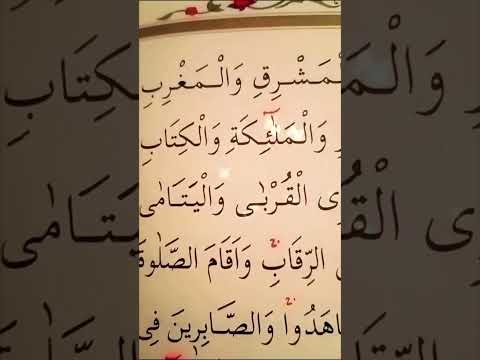 لْمَشْرِقِ وَالْمَغْرِبِ
وَالْمَلٰٓئِكَةِ وَالْكِتَابِ
الْقُرْبٰى وَالْيَتَامٰى
الرِّقَابِ وَاَقَامَ الصَّلٰوةَ
اهَدُوا وَالصَّابِرٖينَ فِى